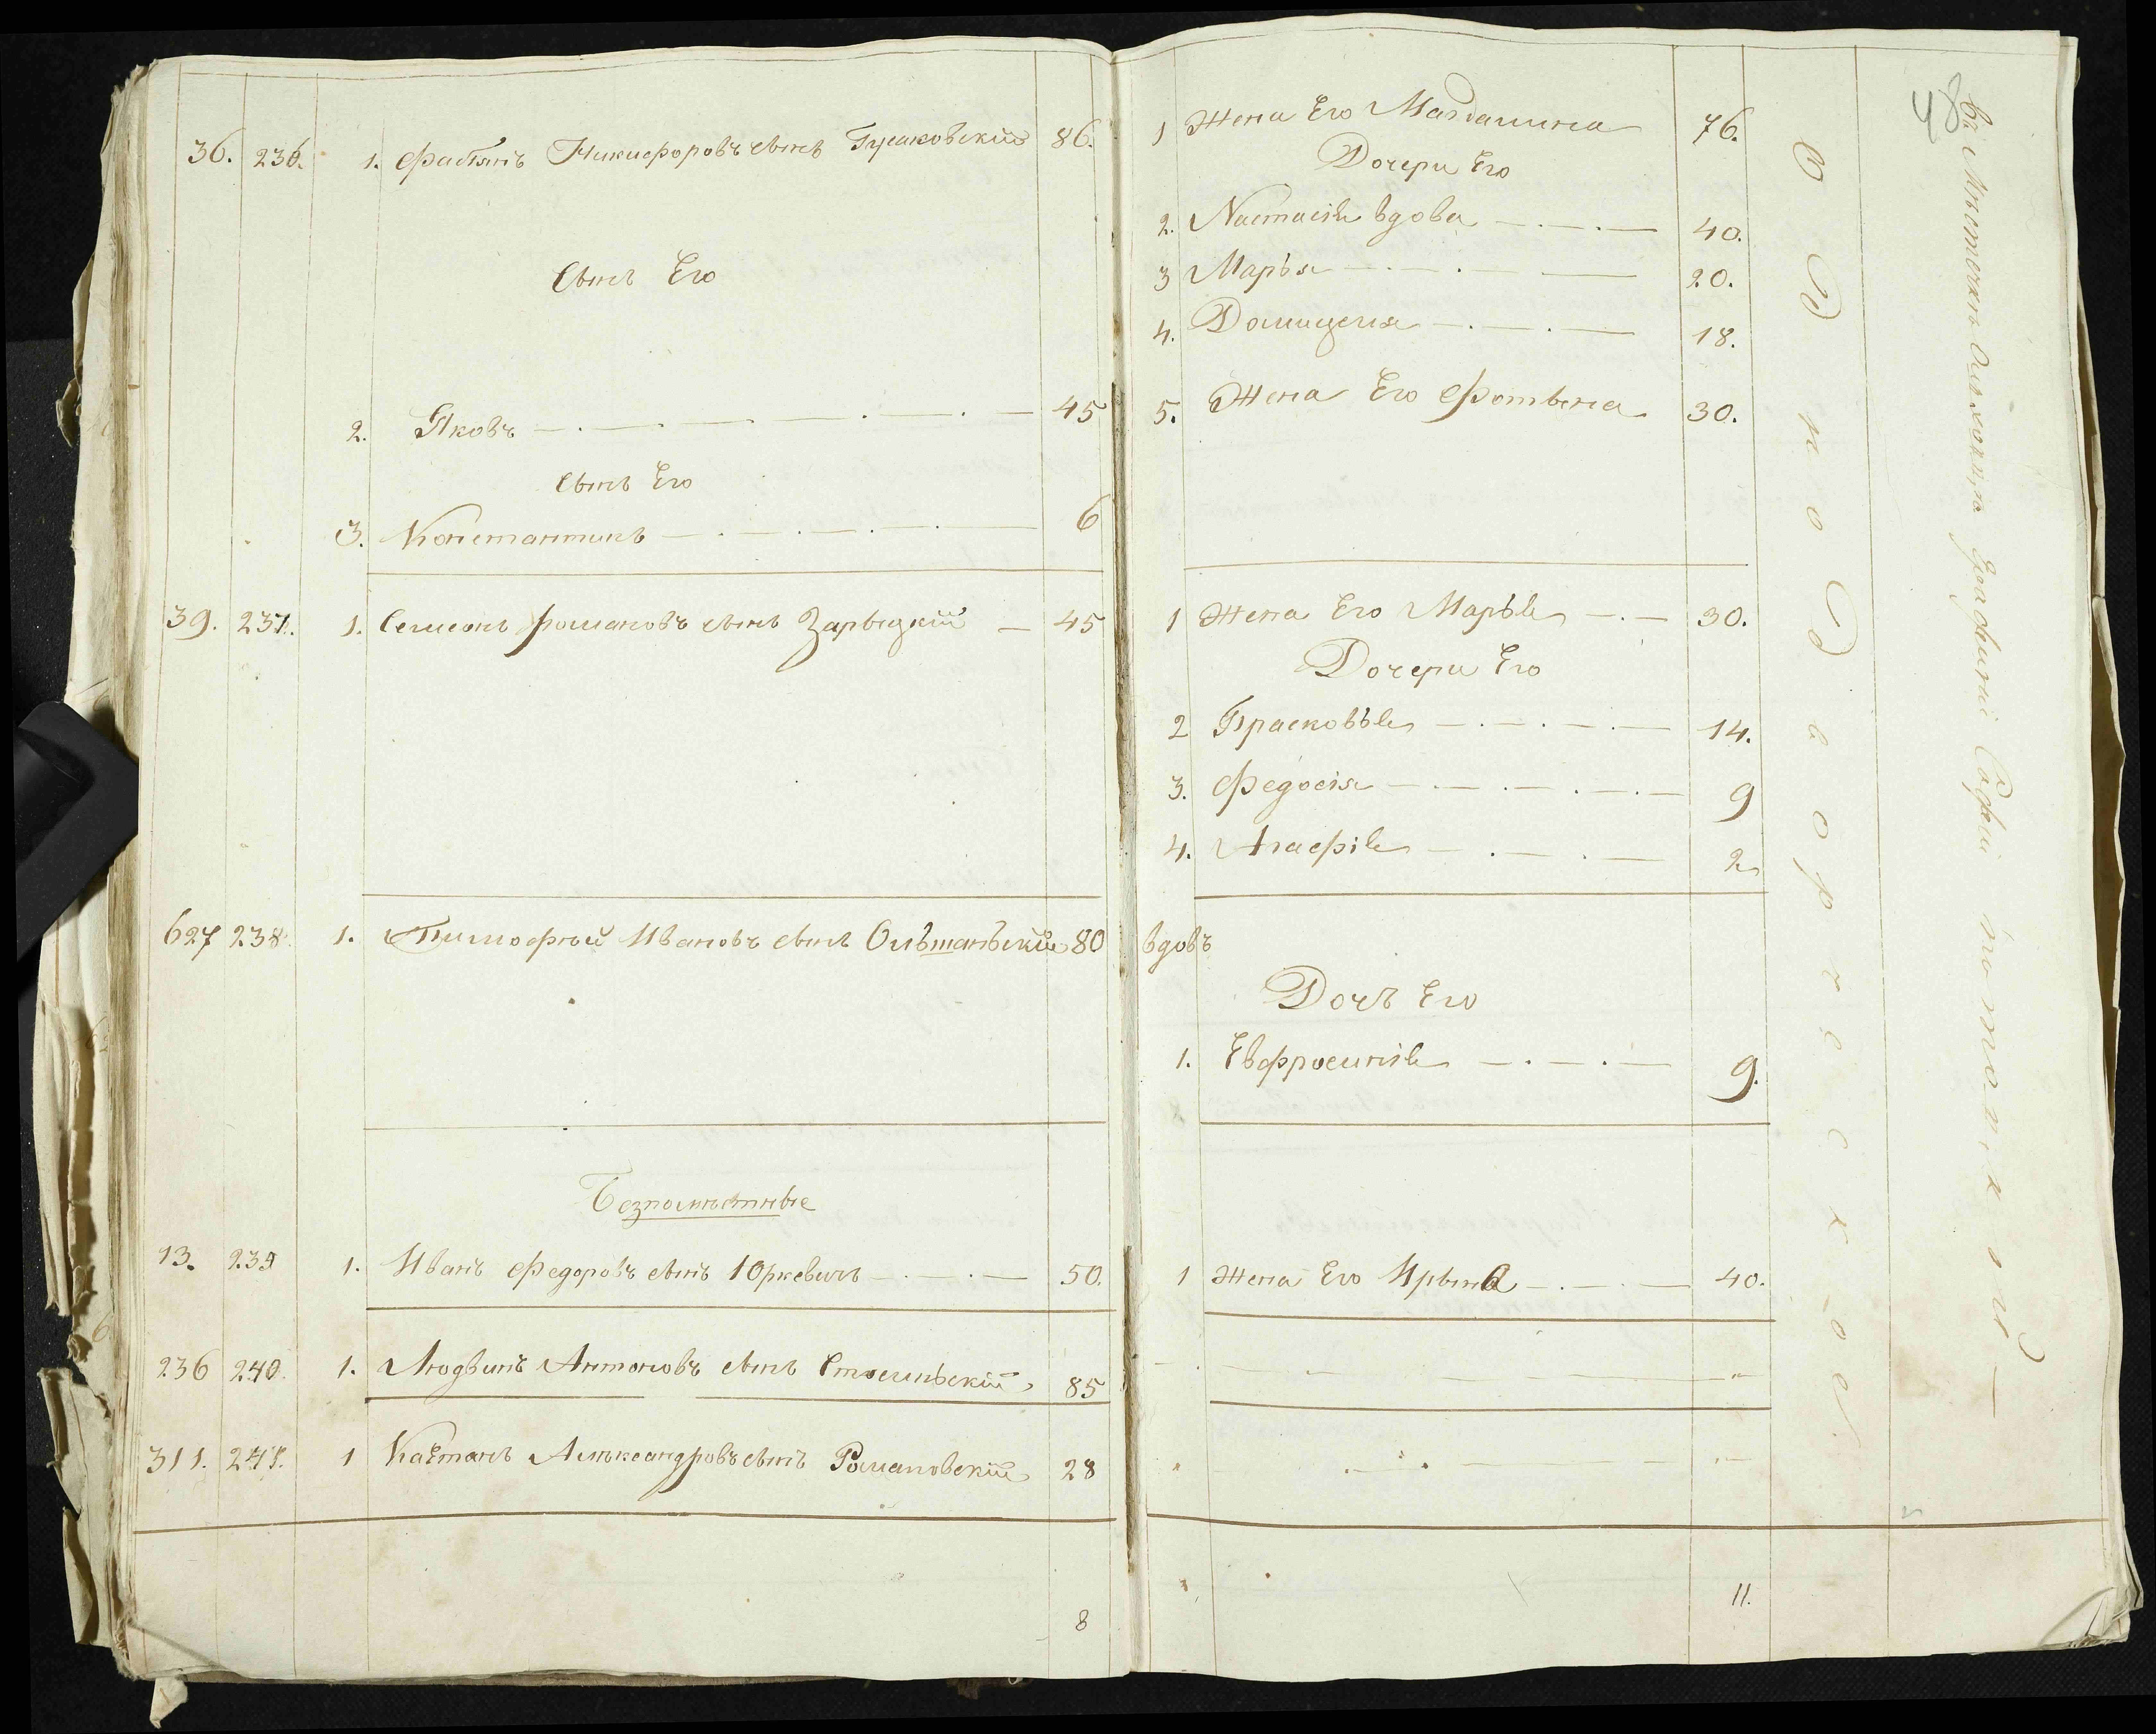 36. 236. 1. Фабіянъ Никифоровъ сынъ Гусаковскій 86.
Сынъ Его
2. Яковъ 45
Сынъ Его
3. Константинъ 6
39. 237. 1. Семенъ Романовъ сынъ Зарыцкій 45
627 238. 1. Тимофѣй Ивановъ сынъ Ольшаньскій 80
Безпомѣстные
13. 239 1. Иванъ Федоровъ сынъ Юркевичъ 50.
236 240. 1. Людвигъ Антоновъ сынъ 85
311. 241. 1 Каетанъ Алѣксандровъ сынъ Романовскій 28
8
1 Жена Его Магдалина 76.
Дочери Его
2. Настасія вдова 40.
3 Марья 20.
4. Домицеля 18.
5. Жена Его Фотына 30.
1 Жена Его Марья 30.
Дочери Его
2 Прасковья 14.
3. Федосія 9
4. Агафія 2
вдовъ
Дочь Его
1. Евфросинія 9.
1 Жена Его Ирына 40.
11.
Въ Мѣстечкѣ графини Софіи Потоцкой